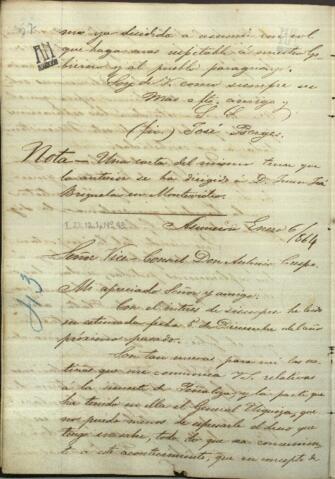 ma ya decidida a asumir un rol
que haga mas respetable a nuestro Go-
bierno y al pueblo paraguayo.
Soy de V. como siempre su
mas afto amigo y
S. S.
(fir.) José Berges.
Nota — Una carta del mismo tenor que
la anterior se ha dirigido á D. Juan José
Brizuela en Montevideo.
Asuncion Enero 6/1864
Señor Vice-Consul Don Antonio Crespo.
43
Mi apreciado Señor y amigo:
Con el interes de siempre he leido
su estimada fecha 1º de Diciembre del año
próximo pasado.
Son tan nuevas para mi las no-
ticias que me comunica V.S. relativas
á la muerte de Peñaloza, y la parte que
ha tenido en ella el General Urquiza, que
no puedo menos de espresarle el deseo que
tengo en saber, todo lo que sea concernien-
te á este acontecimiento, que en concepto de